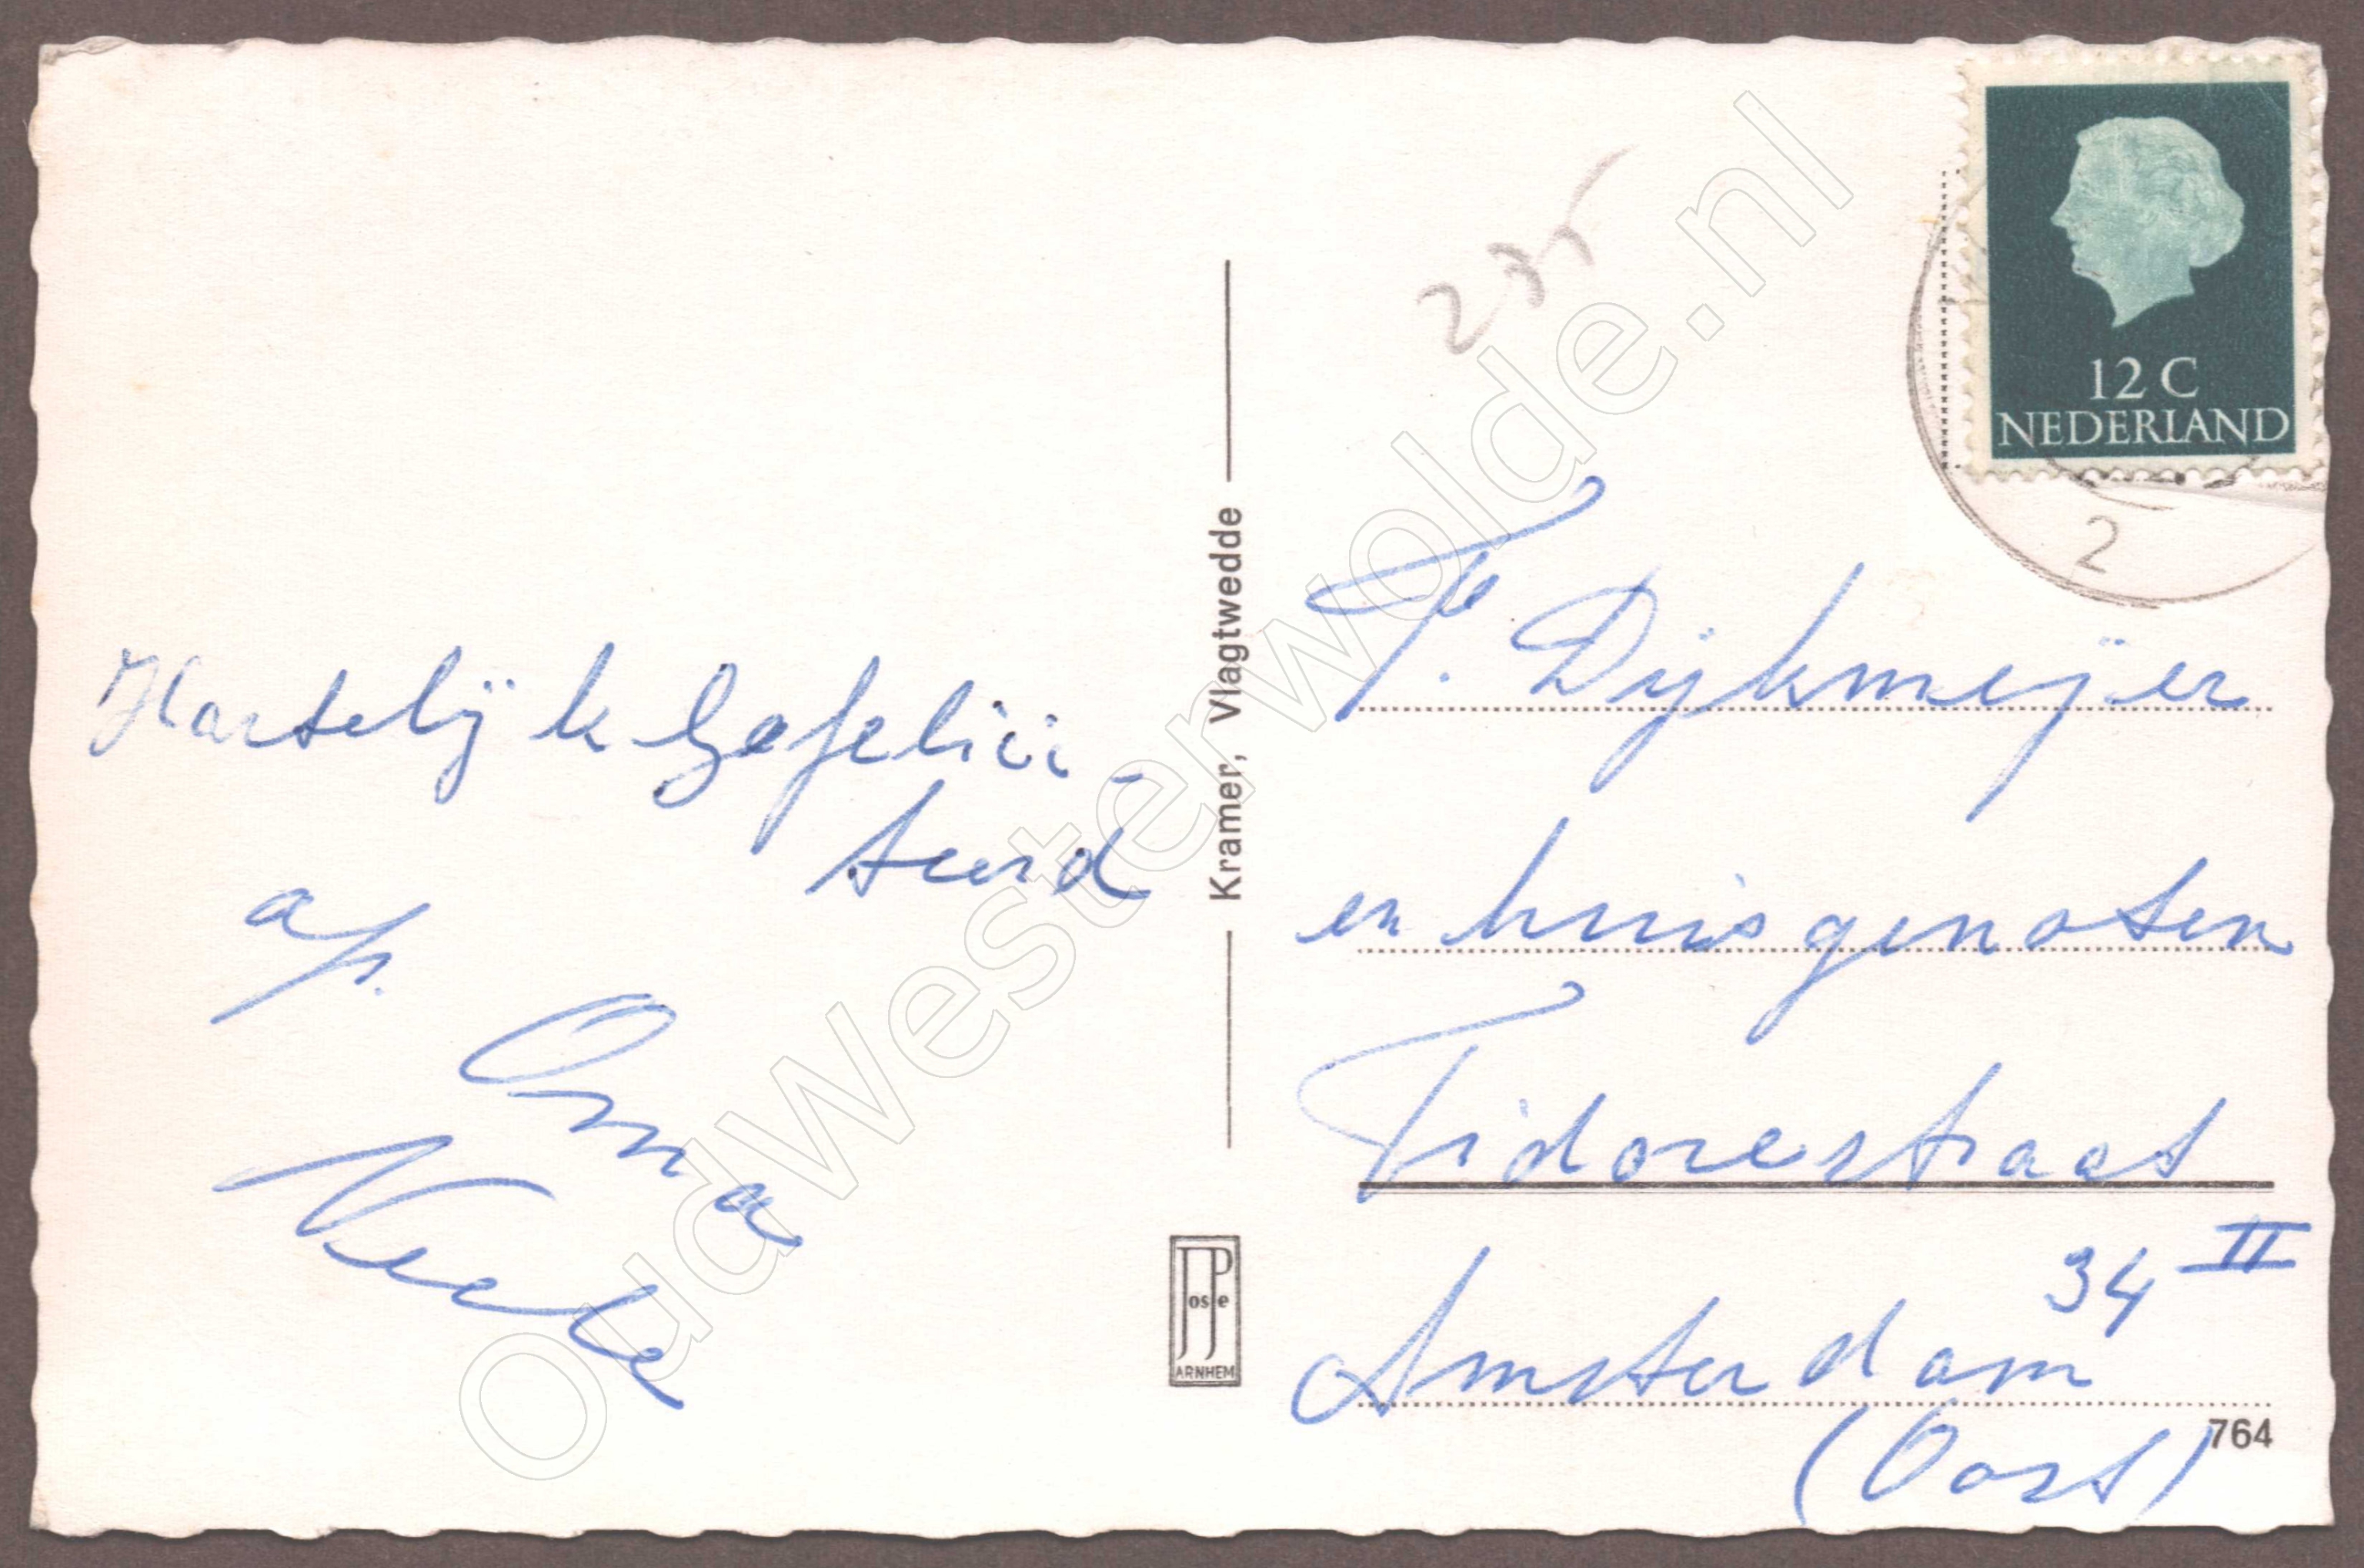 Hartelijk Gefelici-
teerd
af.
Oma
Kramer, Vlagtwedde
JP
osse
ARNHEM
12 C
NEDERLAND
2
235
T. Dijkmeijer
en huisgenoten
Tidorestraat
34 II
Amsterdam
(Oost)
764
OudWesterwolde.nl